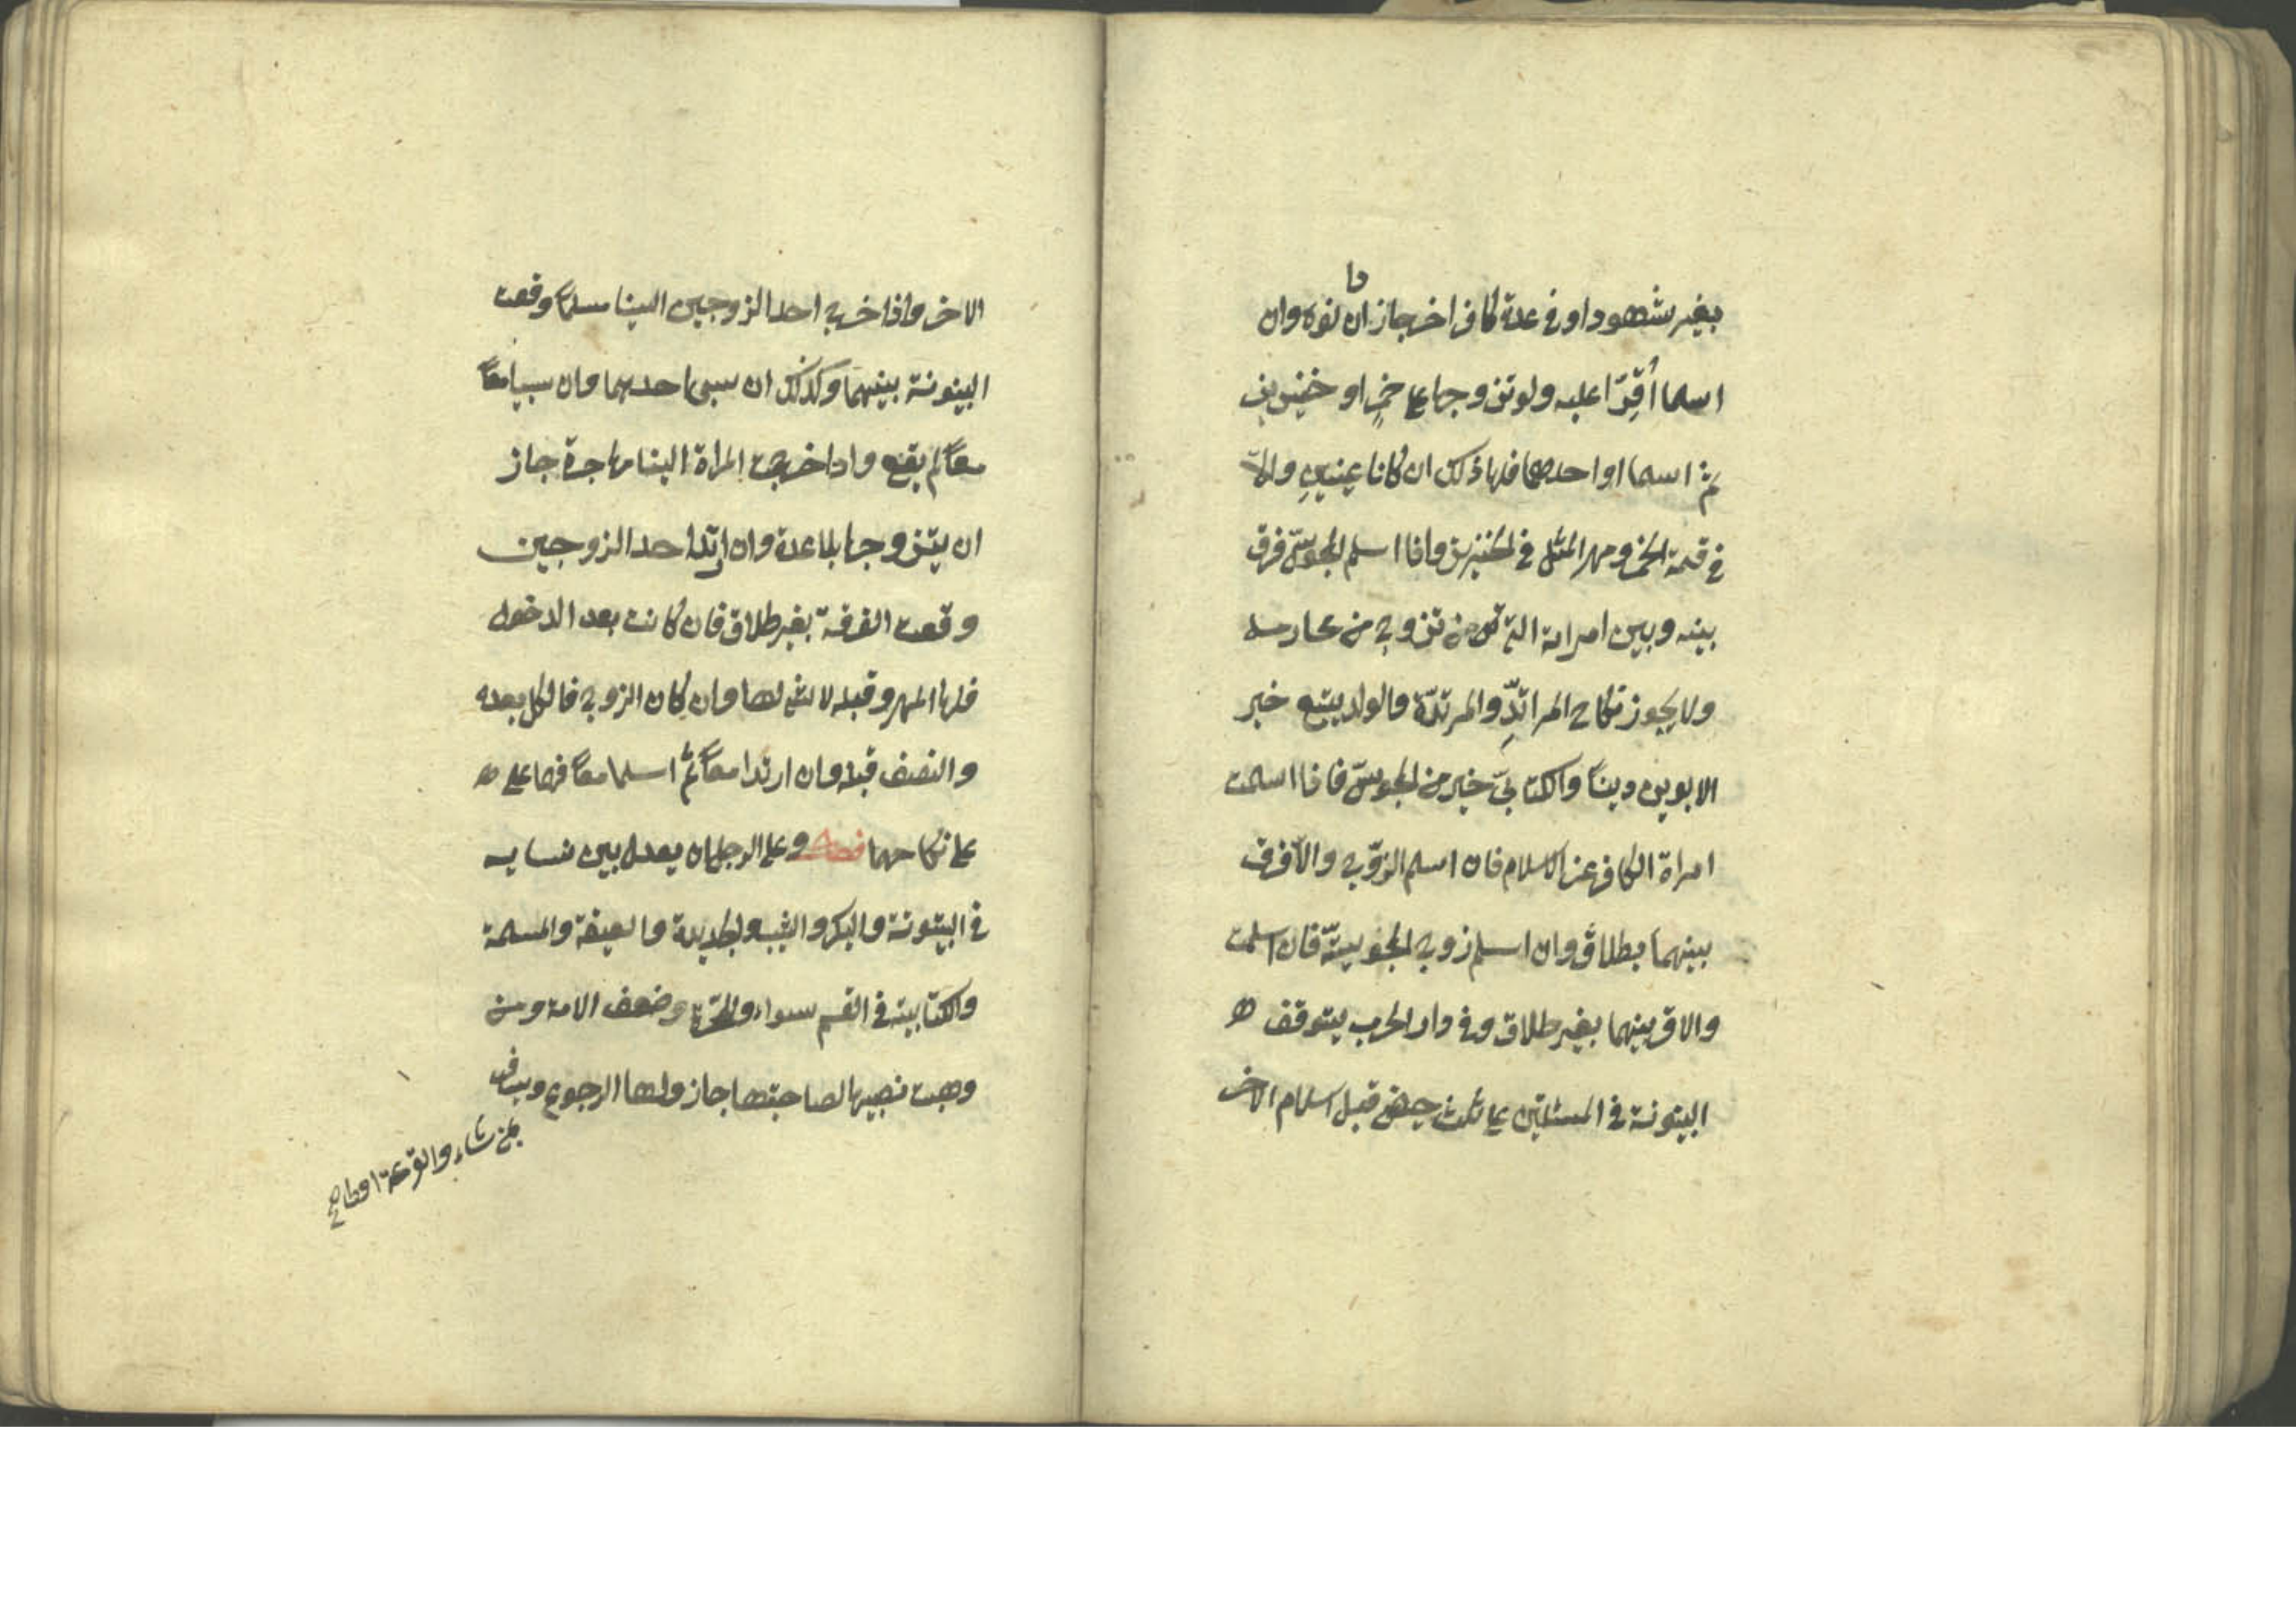 بغير شهود او في عدة كافر اخر جاز ان
اسلما أُقِرّا عليه ولو تزوجها على خمرٍ او خنزير
ثمّ اسلما او احدهما فلها ذلك ان كانا عينين والّا
في قيمة الخمر ومهر المثل في الخنزير واذا اسلم المجوسىّ فرق
بينه وبين امراته التي تزوج من محارمه
ولا يجوز نكاح المراتدِّ والمرتدّة والولد يتبع خير
الابوين ديناً والكتابىّ خير من المجوسىّ فاذا اسلمت
امراة الكافر عرض الاسلام فان اسلم الزوّج والّا فرق
بينهما بطلاق وان اسلم زوج المجوسيّة فان اسلمت
والا فرق بينهما بغير طلاق وفي دار الحرب يتوقف ه
البينونة في المسئلتين على ثلث حيض قبل اسلام الاخر
الاخر واذا خرج احد الزوجين الينا مسلماً وقعت
البينونة بينهما وكذلك ان سبى احدهما وان سبيا معاً
معاً لم يقع واذا خرجت المراة الينا مهاجرة جاز
ان يتزوجها بلا عدة وان ارتد احد الزوجين
وقعت الفرقة بغير طلاق فان كانت بعد الدخول
فلها المهر وقبله لا شئ لها وان كان الزوج فالكل بعده
والنصف قبله وان ارتدا معاً ثمّ اسلما معاً فهما على ه
على نكاحهما فصل وعلى الرجل ان يعدل بين نسايه
في البيتوتة والبكر والثيب والجديدة والعتيقة والمسلمة
والكتابية في القسم سواء وللحرّة ضعف الامة ومن
وهبت نصيبها لصاحبتها جاز ولها الرجوع ويسافر
بمن شاء والقرعة اولى